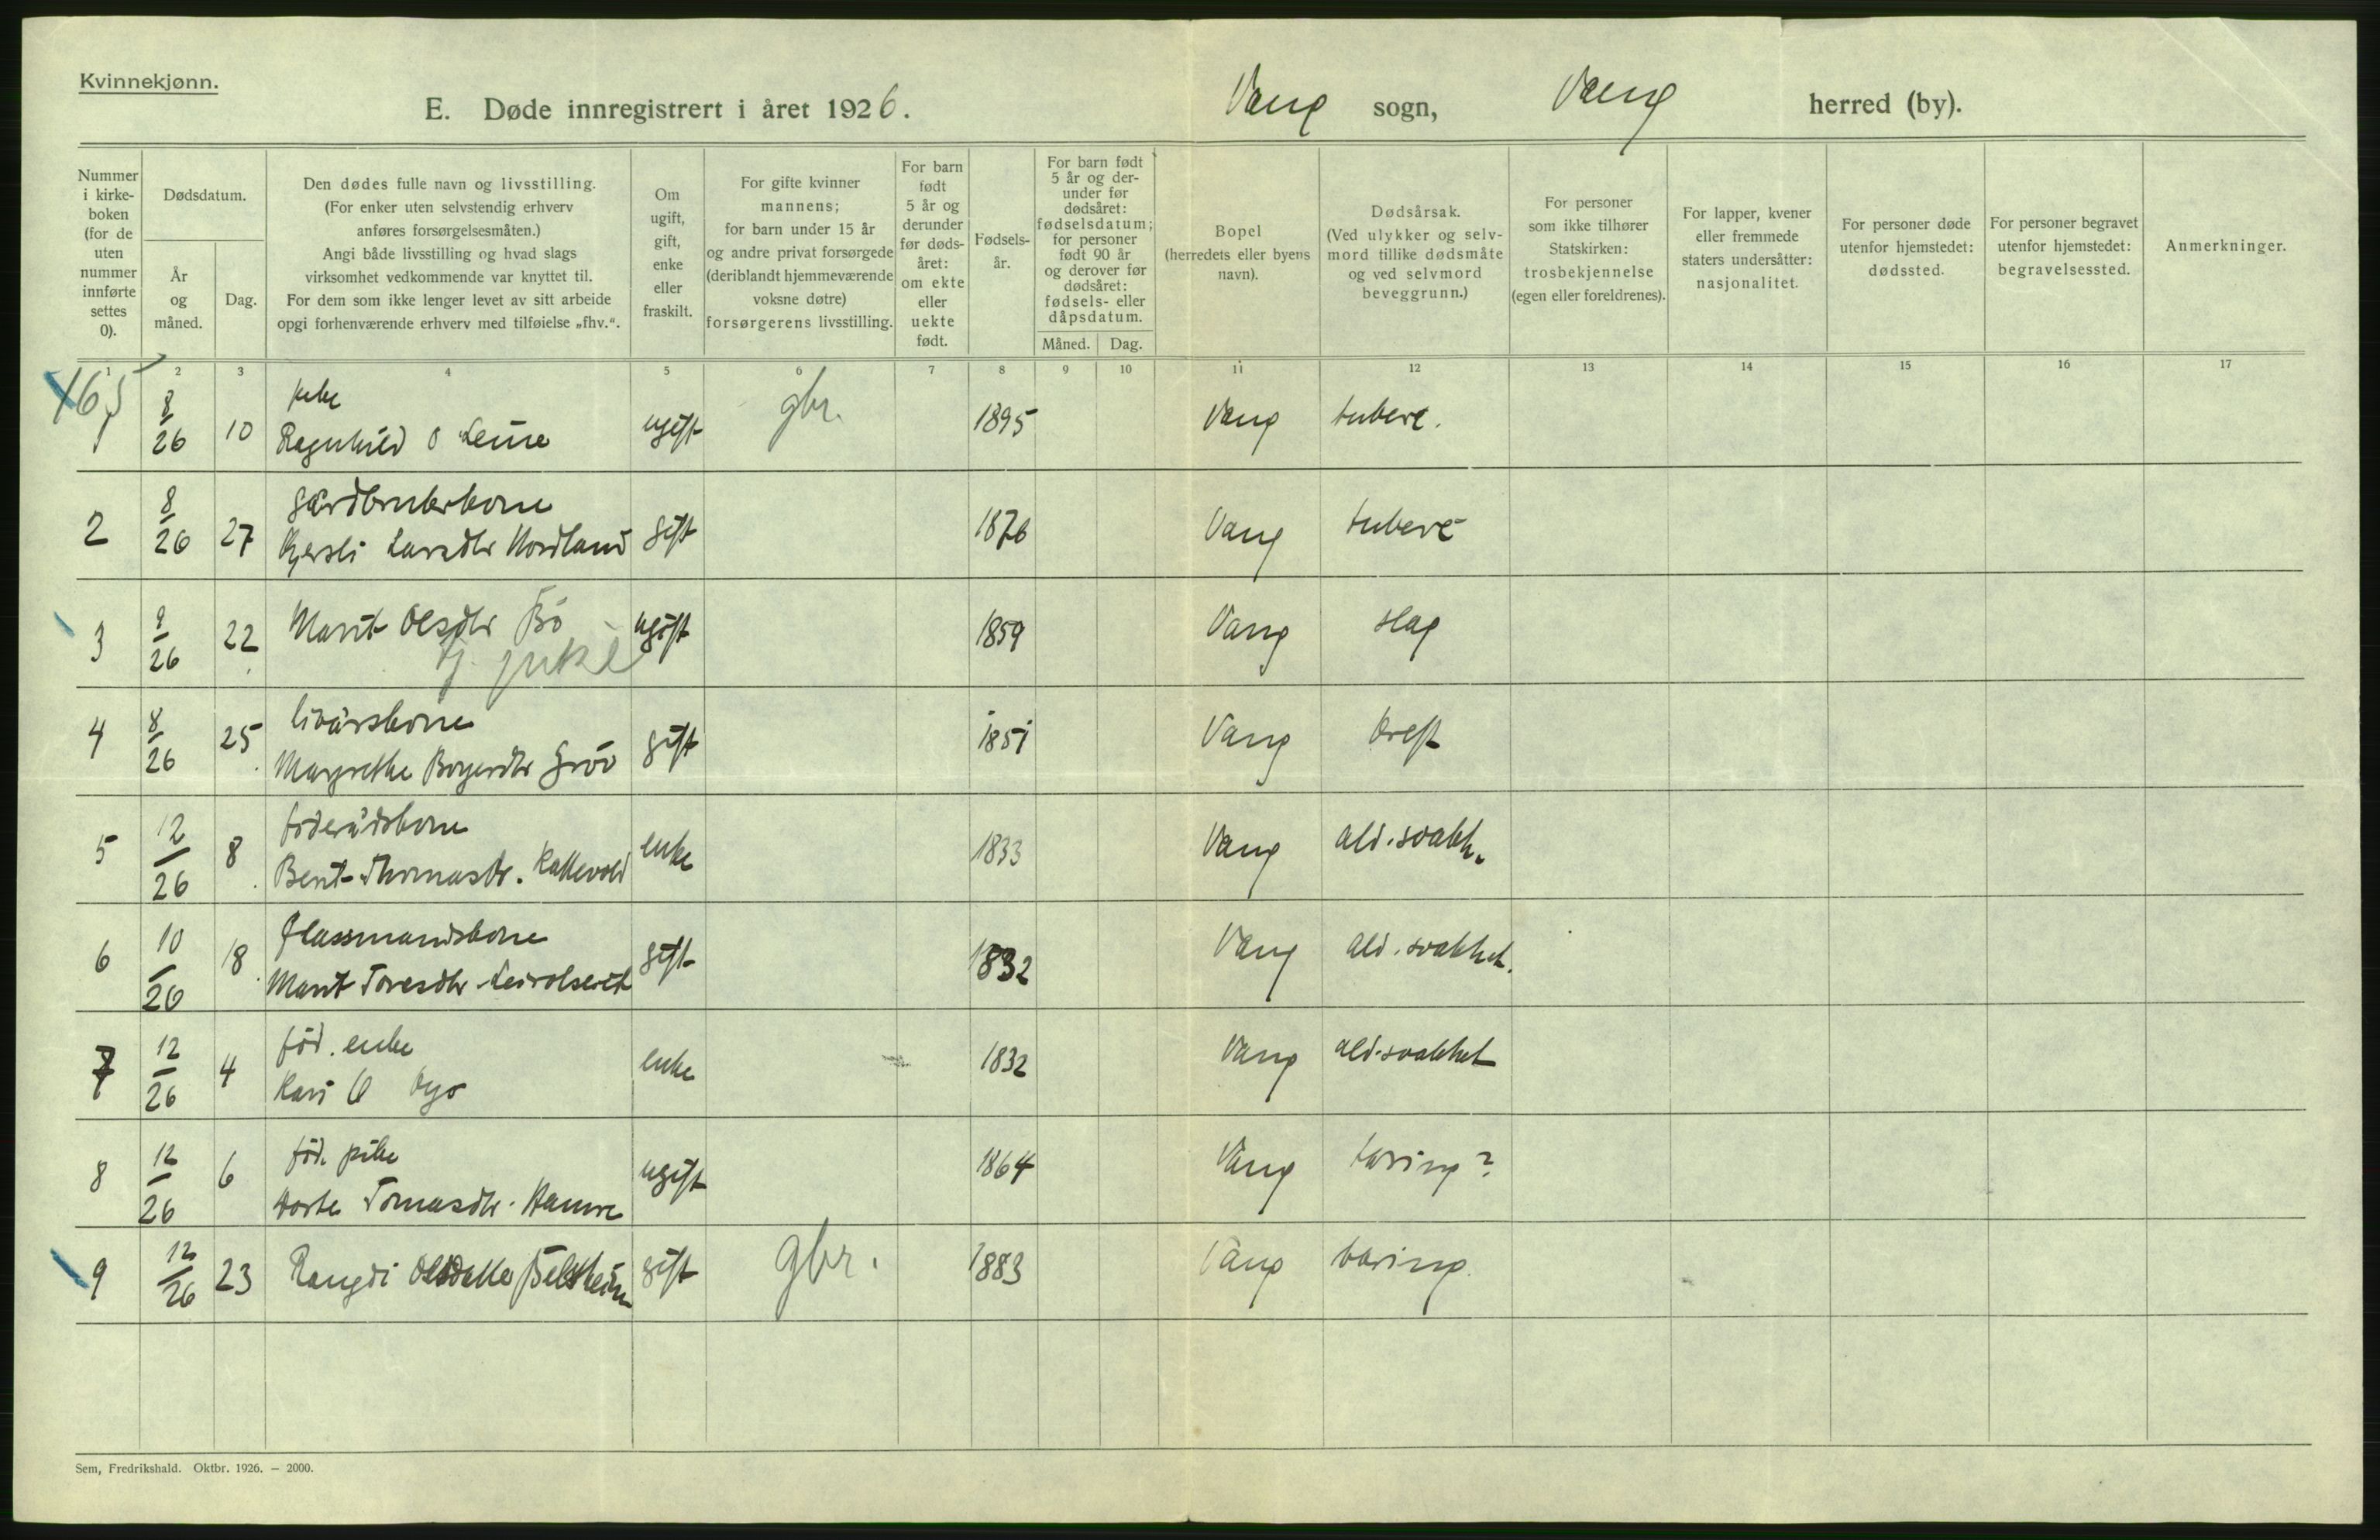 Kvinnekjønn.
E. Døde innregistrert i året 1926.
Vang sogn, Vang herred (by).
Nummer i kirke-boken (for de uten nummer innførte settes 0).
Dødsdatum.
År og måned.
Dag.
Den dødes fulle navn og livsstilling.
(For enker uten selvstendig erhverv anføres forsørgelsesmåten.)
Angi både livsstilling og hvad slags virksomhet vedkommende var knyttet til.
For dem som ikke lenger levet av sitt arbeide opgi forhenværende erhverv med tilføielse „fhv.“.
Om ugift, gift, enke eller fraskilt.
For gifte kvinner mannens; for barn under 15 år og andre privat forsørgede (deriblandt hjemmeværende voksne døtre) forsørgerens livsstilling.
For barn født 5 år og derunder før døds-året: om ekte eller uekte født.
Fødsels-år.
For barn født 5 år og der-under før dødsåret: fødselsdatum; for personer født 90 år og derover før dødsåret: fødsels- eller dåpsdatum.
Måned. Dag.
Bopel (herredets eller byens navn).
Dødsårsak. (Ved ulykker og selv-mord tillike dødsmåte og ved selvmord beveggrunn.)
For personer som ikke tilhører Statskirken: trosbekjennelse (egen eller foreldrenes).
For lapper, kvener eller fremmede staters undersåtter: nasjonalitet.
For personer døde utenfor hjemstedet: dødssted.
For personer begravet utenfor hjemstedet: begravelsessted.
Anmerkninger.
1 2 3 4 5 6 7 8 9 10 11 12 13 14 15 16 17
165
1 8/26 10 pike Ragnhild O Leine ugift gbr. 1895 Vang tuberc.
2 8/26 27 gårdbrukerkone Kjersti Larsdtr Nordland gift 1876 Vang tuberc
3 9/26 22 Marit Olsdtr Bö ugift 1859 Vang slag
4 8/26 25 livårskone Margrethe Bogerdtr Gröv gift 1851 Vang kreft
5 12/26 8 föderådskone Berit Thomasdr. Kattevold enke 1833 Vang ald.svakh.
6 10/26 18 Plassmandskone Marit Toresdtr gift 1832 Vang ald.svakhet.
7 12/26 4 föd. enke Kari O enke 1832 Vang ald.svakhet
8 12/26 6 föd. pike Dorte Tomasdtr. Hamre ugift 1864 Vang täring?
9 12/26 23 Rangdi Olsdatter Belsheim gift gbr. 1883 Vang täring.
Sem, Fredrikshald. Oktbr. 1926. – 2000.